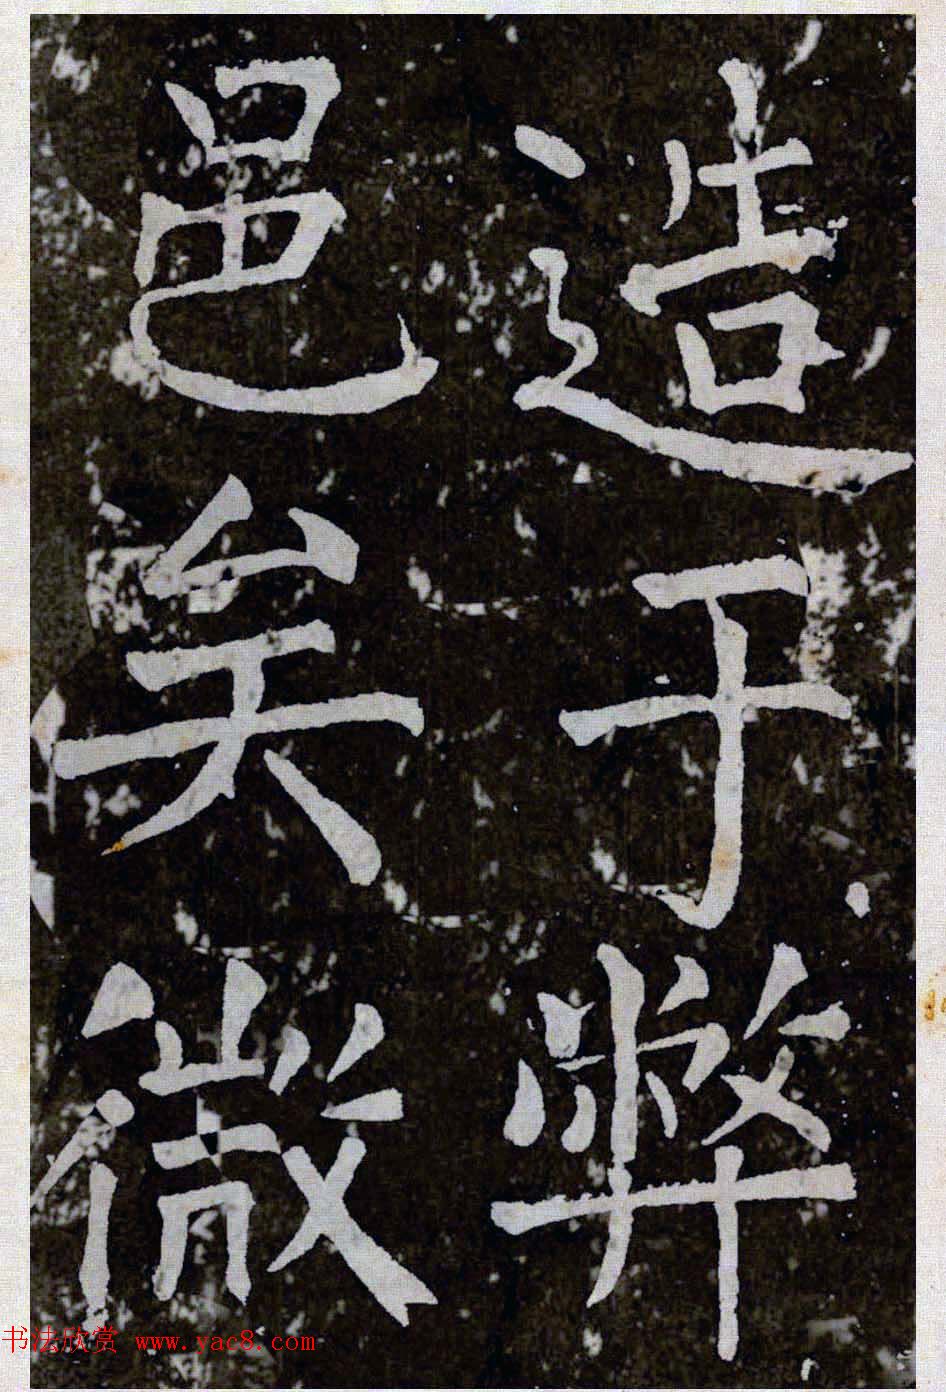 造于弊
邑矣微
书法欣赏 www.yac8.com